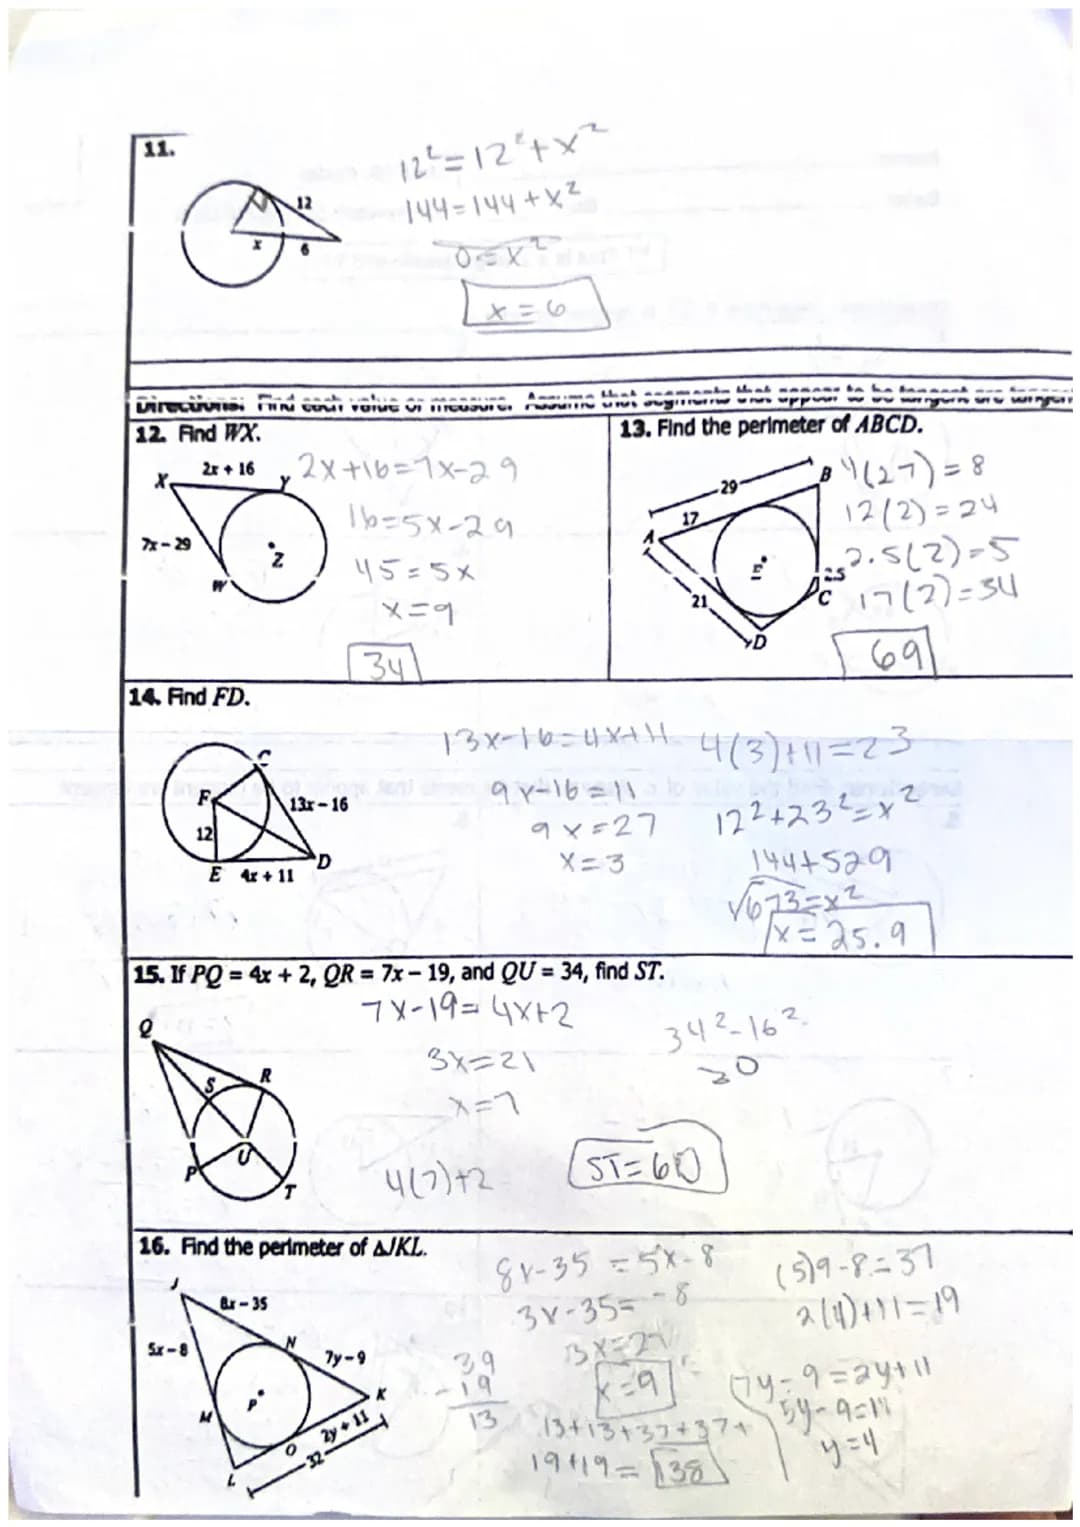 11.
12
x
6
12² = 12² + x²
144 = 144 + x²
0 = x²
x = 6
Directions: Find each value or measure. Assume that segments that appear to be tangent are tangent
12. Find WX.
2x + 16
X
Y
7x – 29
Z
W
2x+16=7x-29
16=5x-29
45=5x
x=9
34
13. Find the perimeter of ABCD.
29
B
17
A
E
2.5
C
21
D
12(2)=24
2.5(2)=5
17(2)=34
69
14. Find FD.
C
F
13x – 16
12
D
E
4x + 11
13x-16=4x+11
9x-16=11
9x=27
x=3
4(3)+11=23
12²+23²=x²
144+529
√673=x²
x=25.9
15. If PQ = 4x + 2, QR = 7x – 19, and QU = 34, find ST.
Q
S
R
U
P
T
7x-19=4x+2
3x=21
x=7
4(7)+2
34²-16²
30
16. Find the perimeter of ΔJKL.
J
8x – 35
5x – 8
N
7y – 9
K
P
M
2y + 11
O
32
L
8x-35=5x-8
3x-35=-8
3x=27
x=9
(5)9-8=37
2(4)+11=19
7y-9=2y+11
5y-9=11
y=4
39
-19
13
13+13+37+37+
19+19=138